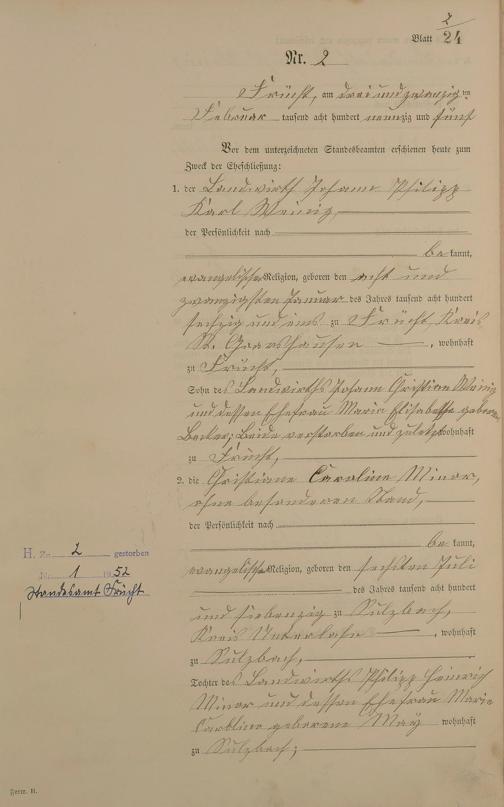 2
Blatt 24
Nr. 2
Frücht, am drei und zwanzig ten
Februar tausend acht hundert neunzig und fünf
Vor dem unterzeichneten Standesbeamten erschienen heute zum
Zweck der Eheschließung:
1. der Landwirth Johann Philipp
Karl Weinig,
der Persönlichkeit nach
be kannt,
evangelischer Religion, geboren den acht und
zwanzigsten Januar des Jahres tausend acht hundert
sechzig und eins zu Frücht, Kreis
St. Goarshausen, wohnhaft
zu Frücht,
Sohn des Landwirths Johann Christian Weinig
und dessen Ehefrau Maria Elisabethe geborene
Becker, Beide verstorben und zuletzt wohnhaft
zu Frücht,
2. die Christiane Caroline Minor,
ohne besonderen Stand,
der Persönlichkeit nach
be kannt,
evangelischer Religion, geboren den sechsten Juli
des Jahres tausend acht hundert
und siebenzig zu Sulzbach,
Kreis Unterlahn, wohnhaft
zu Sulzbach,
Tochter des Landwirths Philipp Heinrich
Minor und dessen Ehefrau Marie
Caroline geborene May wohnhaft
zu Sulzbach;
H. Zu 2 gestorben
Nr. 1 1952
Standesamt Frücht
Form. B.